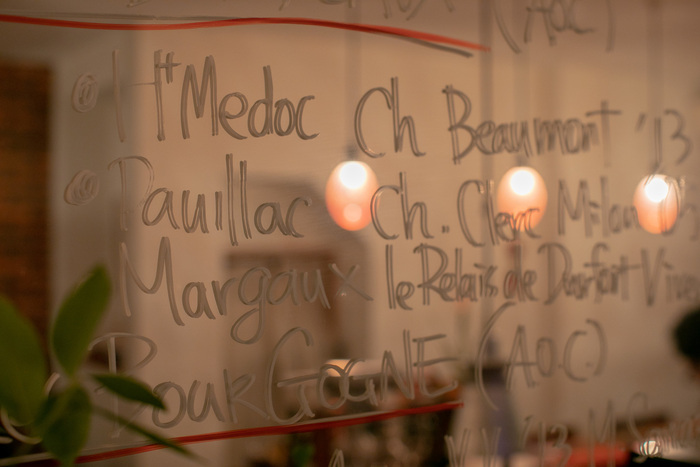 (AOC)
@ Ht Medoc Ch Beaumont '13
@ Pauillac Ch. Clerc Milon
Margaux le Relais de Durfort Viv
BOURGOGNE (A.O.C.)
'13 M